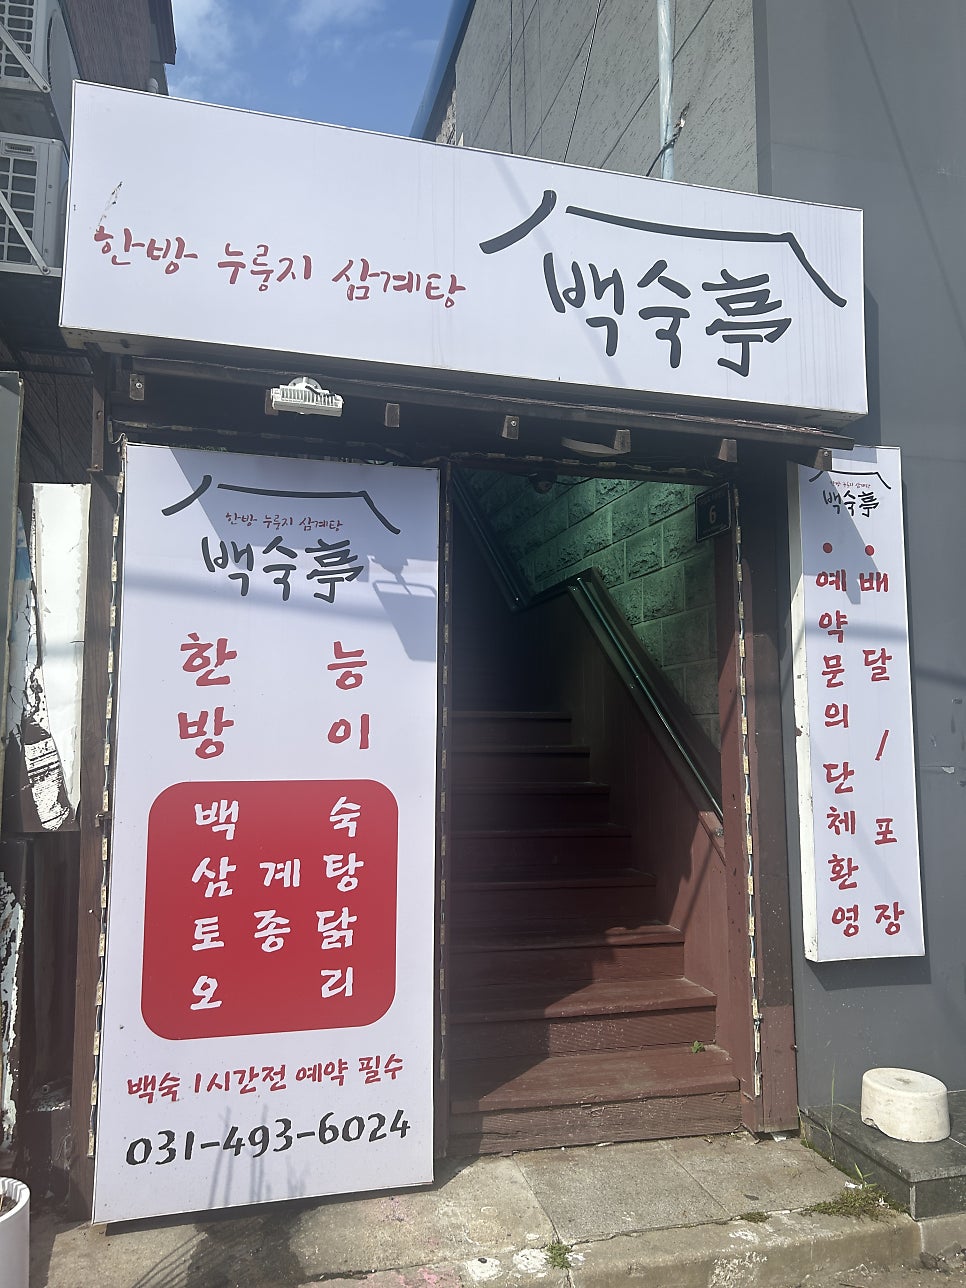 한방 누룽지 삼계탕
백숙亭
한방 누룽지 삼계탕
백숙亭
한 능
방 이
백 숙
삼계탕
토종닭
오 리
백숙 1시간전 예약 필수
031-493-6024
6
한방 누룽지 삼계탕
백숙亭
•예약문의 단체환영
•배달/포장